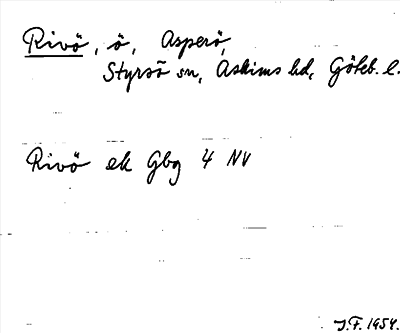 Rivö, ö, Asperö,
Styrsö sn, Askims hd, Göteb. l.
Rivö ek Gbg 4 NV
J.F. 1954.